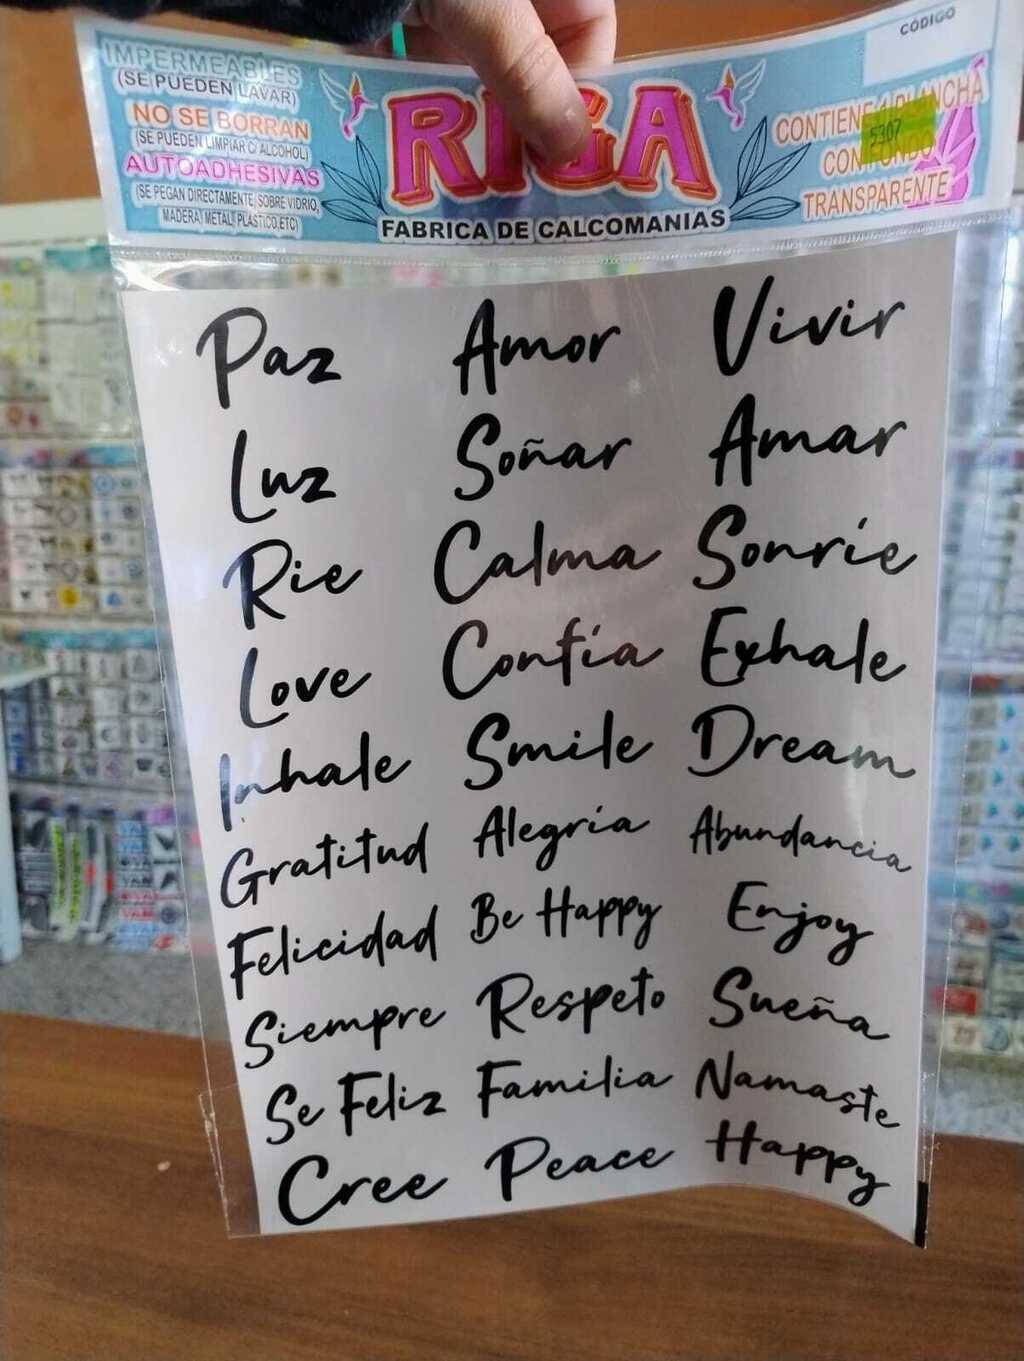 CÓDIGO
IMPERMEABLES
(SE PUEDEN LAVAR)
NO SE BORRAN
(SE PUEDEN LIMPIAR C/ ALCOHOL)
AUTOADHESIVAS
(SE PEGAN DIRECTAMENTE SOBRE VIDRIO,
MADERA, METAL, PLASTICO, ETC)
RIGA
FABRICA DE CALCOMANIAS
CONTIENE 1 PLANCHA
CON FONDO
TRANSPARENTE
5307
Paz Amor Vivir
Luz Soñar Amar
Rie Calma Sonríe
Love Confía Exhale
Inhale Smile Dream
Gratitud Alegría Abundancia
Felicidad Be Happy Enjoy
Siempre Respeto Sueña
Se Feliz Familia Namaste
Cree Peace Happy